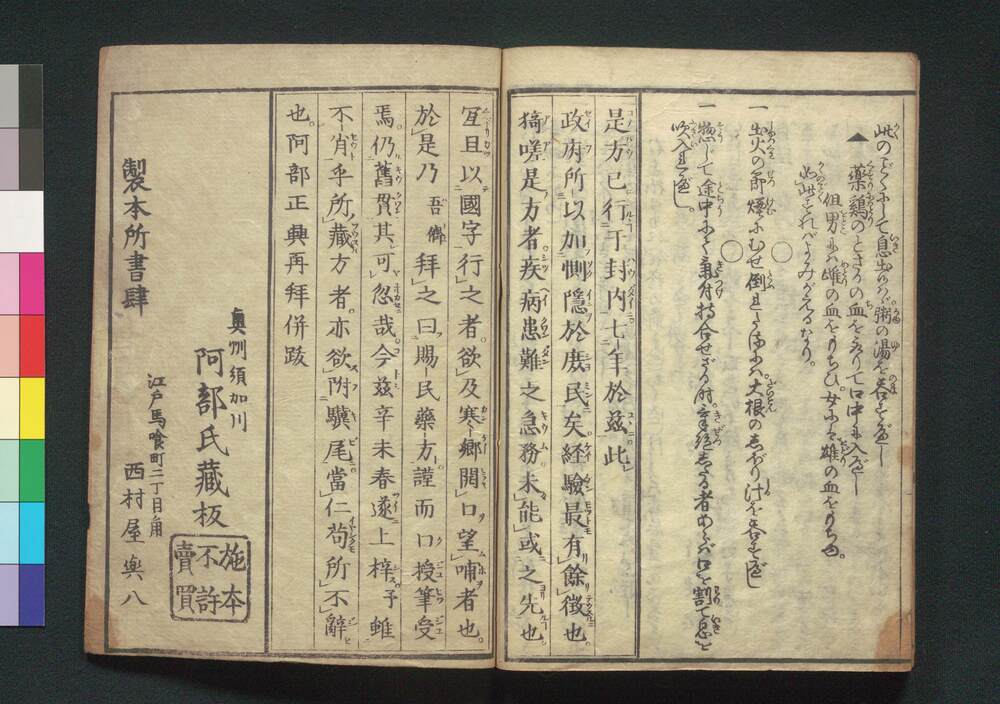 此のごとくにして息出ださば粥の湯を呑すべし
▲薬鶏のとさかの血をとりて口中に入べし
但男には雌の血をもちひ。女には雄の血をもちゆ。
如此すればよみがへるなり。
一出火の節煙にむせ倒れたるには。大根のしぼり汁を呑すべし
一惣じて途中にて氣付持合せざる时。
吹入るべし。
是方已行于封内七年於茲此
政府所以加惻隱於庶民矣経驗最有餘徴也
猗嗟是方者疾病患難之急務未能或之先也
宜且以國字行之者欲及寒鄉開口望哺者也
於是乃吾鄉拜之曰賜民藥方謹而口授筆受
焉仍舊貫其可忽哉今茲辛未春遂上梓予雖
不肖乎所藏方者亦欲附驥尾當仁苟所不辭
也阿部正興再拜併跋
奥州須加川
阿部氏藏板
施本不許賣買
製本所書肆
江戸馬喰町二丁目角
西村屋與八